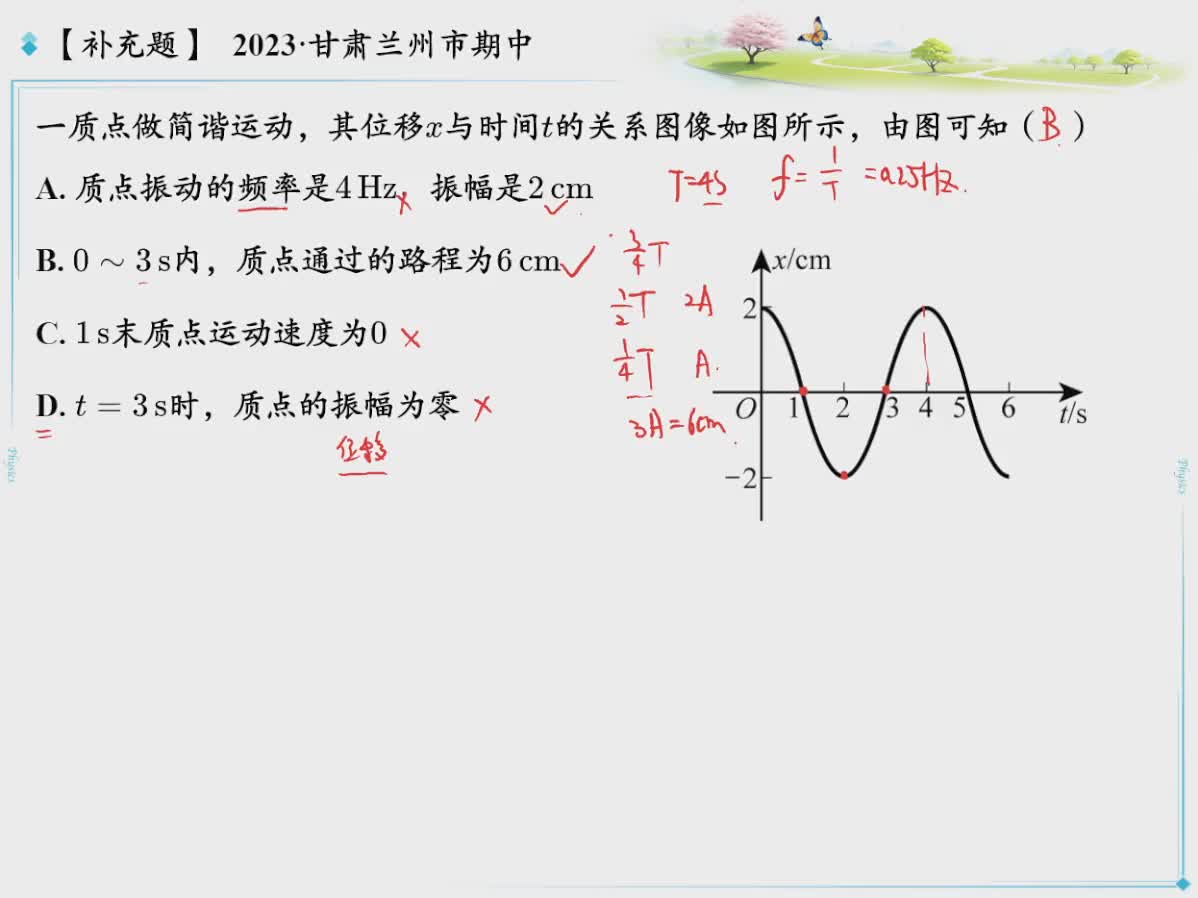 【补充题】 2023·甘肃兰州市期中
一质点做简谐运动，其位移x与时间t的关系图像如图所示，由图可知（B）
A. 质点振动的频率是4 Hz× 振幅是2 cm✓ T=4s f=1/T=0.25Hz.
B. 0 ~ 3 s内，质点通过的路程为6 cm✓ 3/4T
1/2T 2A
C. 1 s末质点运动速度为0 ×
1/4T A.
D. t = 3 s时，质点的振幅为零 ×
3A=6cm.
位移
x/cm
2
O 1 2 3 4 5 6 t/s
−2
Physics
Physics